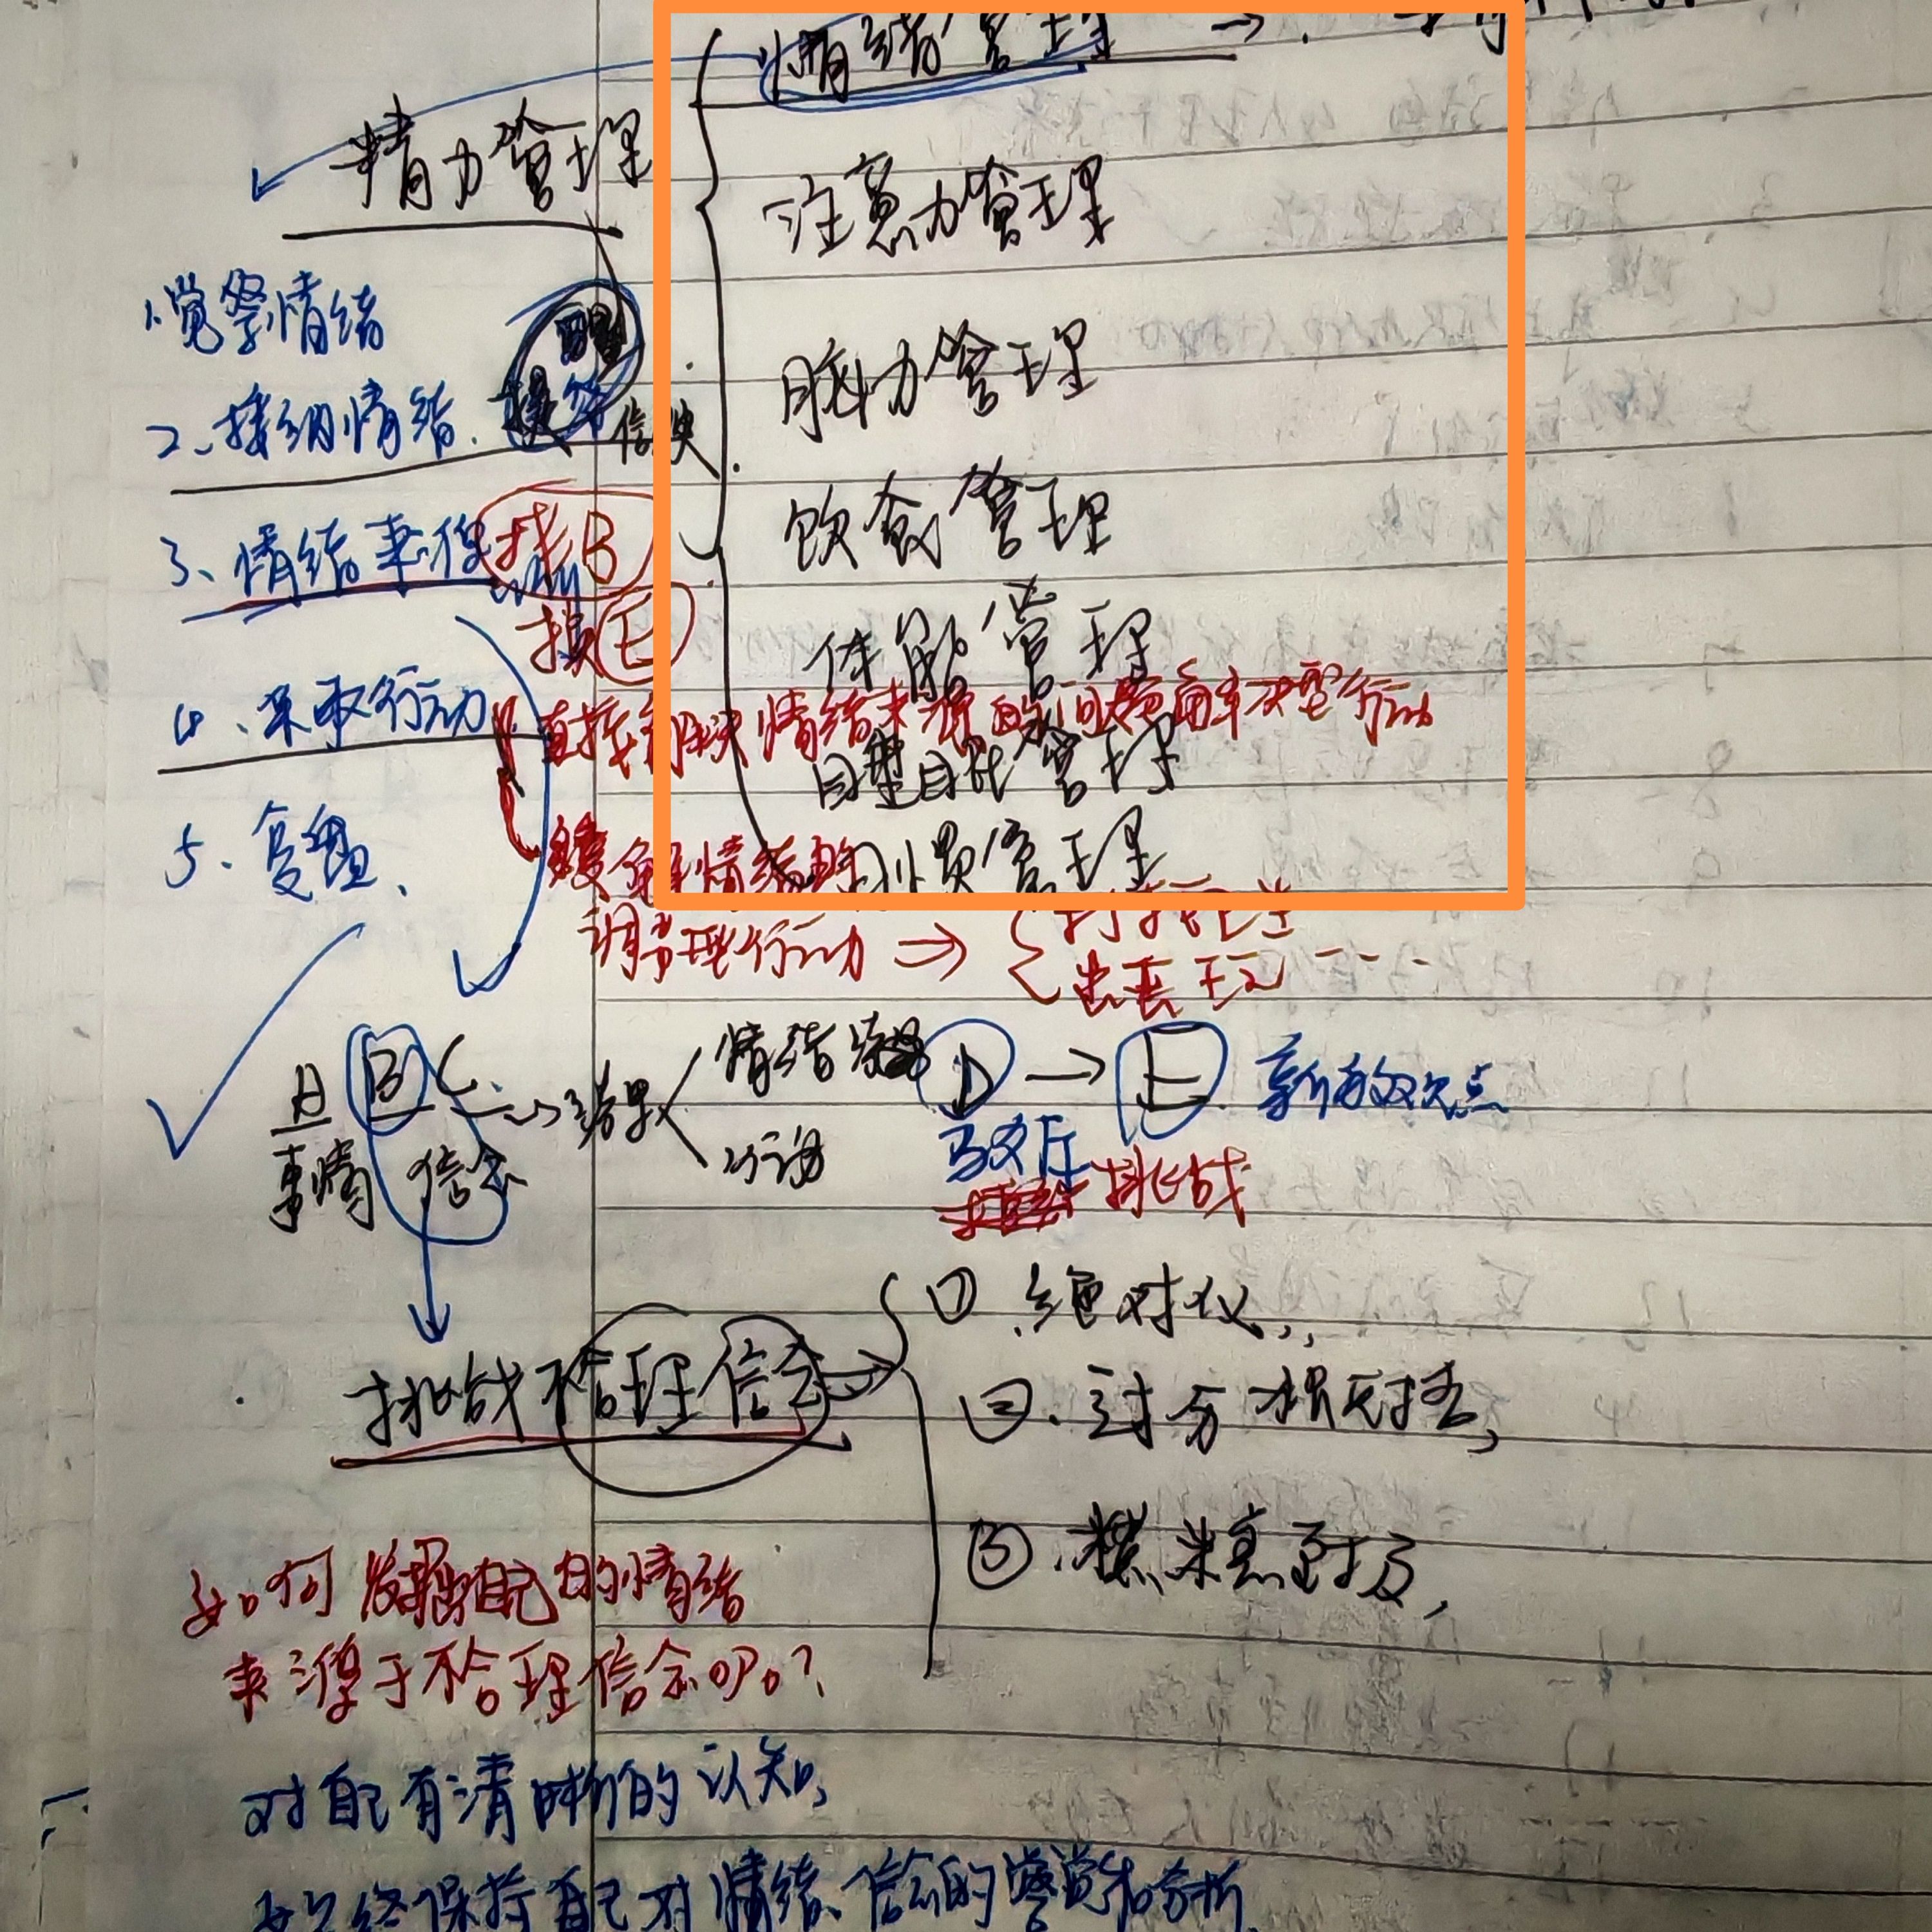 情绪管理 →
精力管理
注意力管理
脑力管理
饮食管理
体能管理
睡眠管理
习惯管理
1.觉察情绪
2、接纳情绪.
3、情绪事件 找B
换E
4、采取行动
直接解决情绪来源的问题
型行动
缓解情绪的
调节型行动 ⇒
5、复盘、
A B C → 结果 情绪
行动
D → E 新的效点
事情 信念 驳斥
挑战
挑战不合理信念 →
① 绝对化,
②.过分概括,
③.糟糕至极,
如何发掘自己的情绪
来源于不合理信念呢?
对自己有清晰的认知,
始终保持自己对情绪、信念的警觉和分析